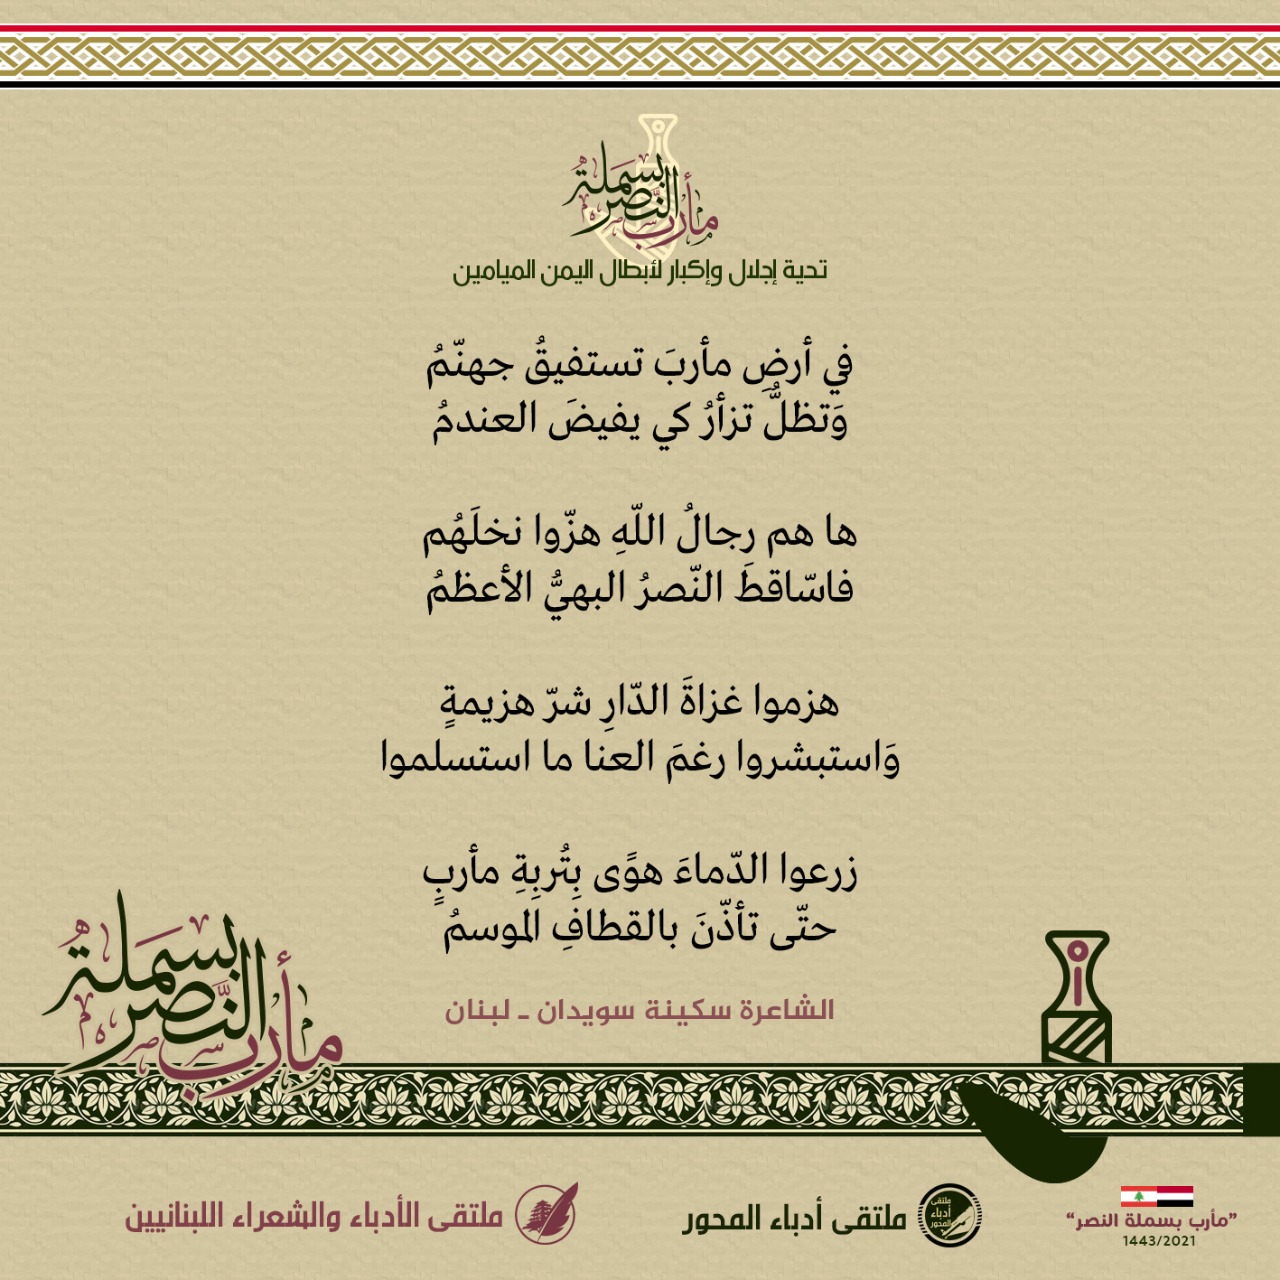 مأرب بسملة النصر
تحية إجلال وإكبار لأبطال اليمن الميامين
في أرضِ مأربَ تستفيقُ جهنّمُ
وَتظلُّ تزأرُ كي يفيضَ العندمُ
ها هم رجالُ اللّهِ هزّوا نخلَهُم
فاسّاقطَ النّصرُ البهيُّ الأعظمُ
هزموا غزاةَ الدّارِ شرّ هزيمةٍ
وَاستبشروا رغمَ العنا ما استسلموا
زرعوا الدّماءَ هوًى بِتُربِةِ مأربٍ
حتّى تأذّنَ بالقطافِ الموسمُ
الشاعرة سكينة سويدان ـ لبنان
مأرب بسملة النّصر
"مأرب بسملة النصر"
1443/2021
ملتقى أدباء المحور
ملتقى أدباء المحور
ملتقى الأدباء والشعراء اللبنانيين